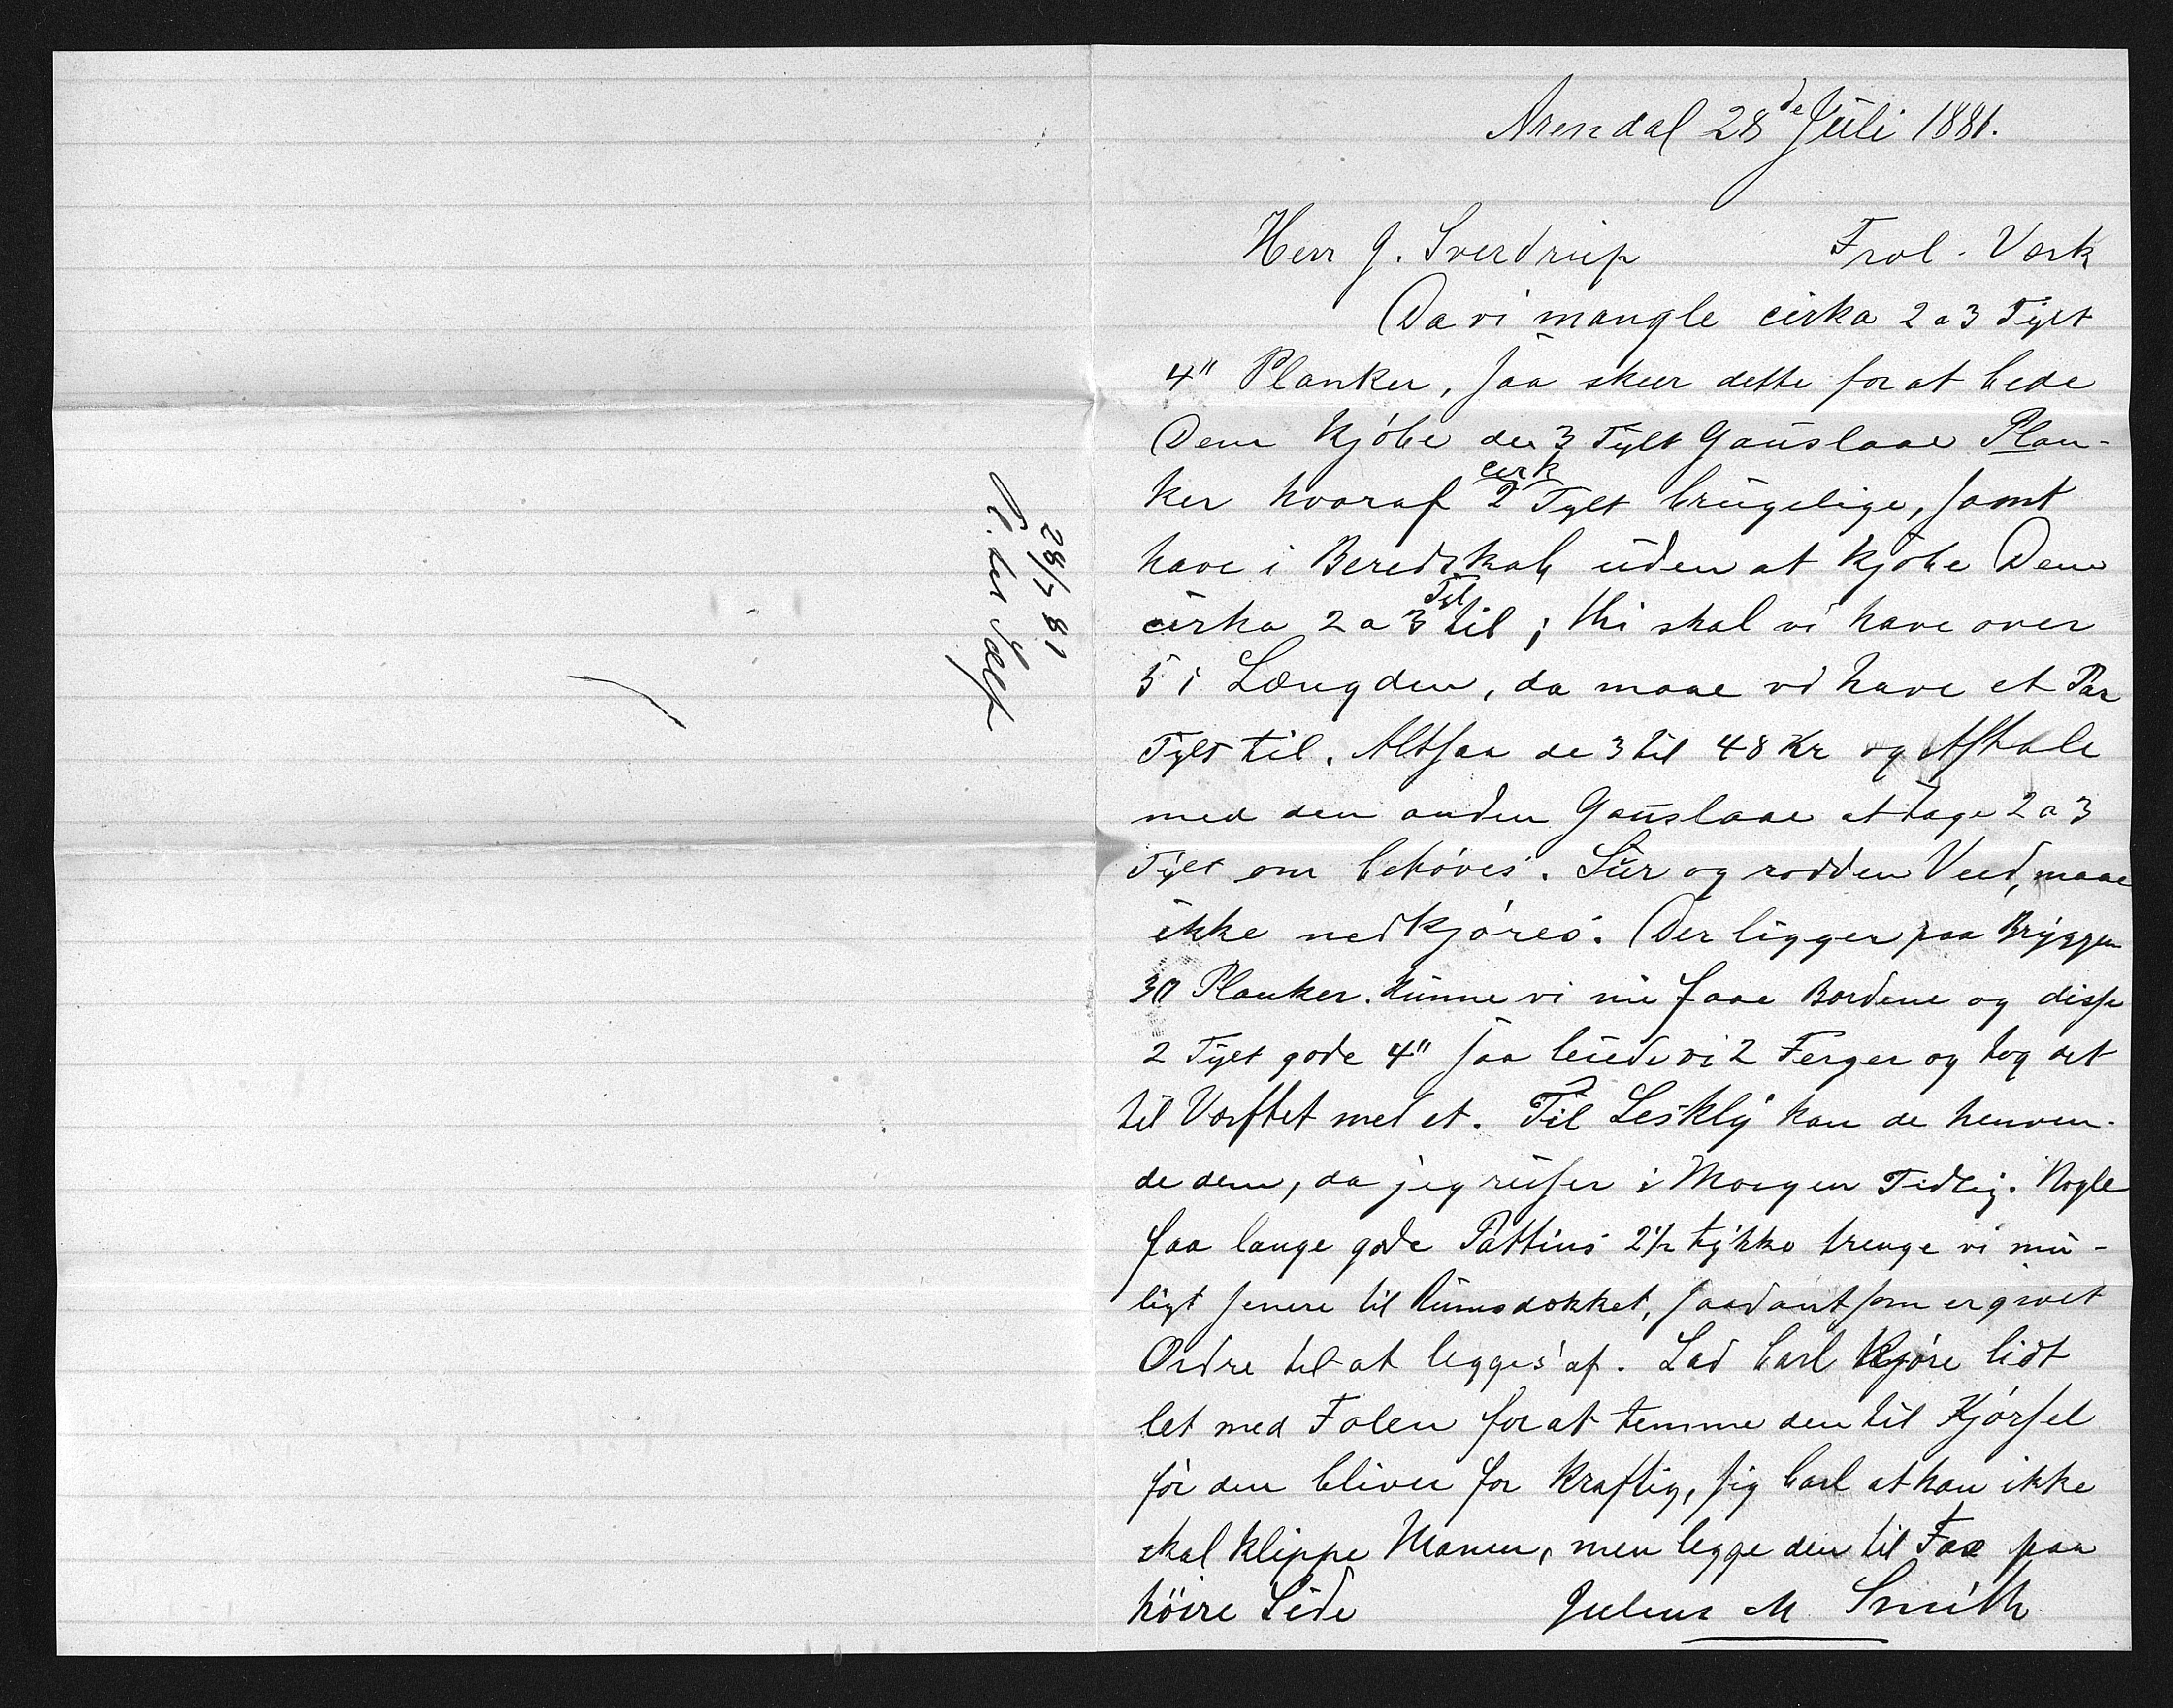 Arendal 28de Juli 1881.
Herr J. Sverdrup Frol. Værk
Da vi mangle cirka 2 a 3 Tylt
4" Planker, saa skeer dette for at bede
Dem kjöbe de 3 Tylt Gauslaae Plan-
ker hvoraf cirk 2 Tylt brugelige, samt
have i Beredskab uden at kjöbe Dem
cirka 2 a 3 Tyl til; thi skal vi have over
5 i Længden, da maae vi have et Par
Tylt til. Altsaa de 3 til 48 Kr og Aftale
med den anden Gauslaae at tage 2 a 3
Tylt om behöves. Sur og rodden Veed, maae
ikke nedkjöres. Der ligger paa Bryggen
30 Planker. Kunne vi nu faae Bordene og disse
2 Tylt gode 4" saa leiede vi 2 Ferger og tog det
til Værftet med et. Til Leskly kan de henven-
de dem, da jeg reiser i Morgen Tidlig. Nogle
faa lange gode Battins 2½ tykke trenge vi mu-
ligt senere til Rumsdækket, saadant som er givet
Ordre til at legges af. Lad Carl Kjöre lidt
let med Folen for at temme den til Kjörsel
för den bliver for kraftig, sig Carl at han ikke
skal klippe Manen, men legge den til Fax paa
höire Side Julius M Smith
28/7 81